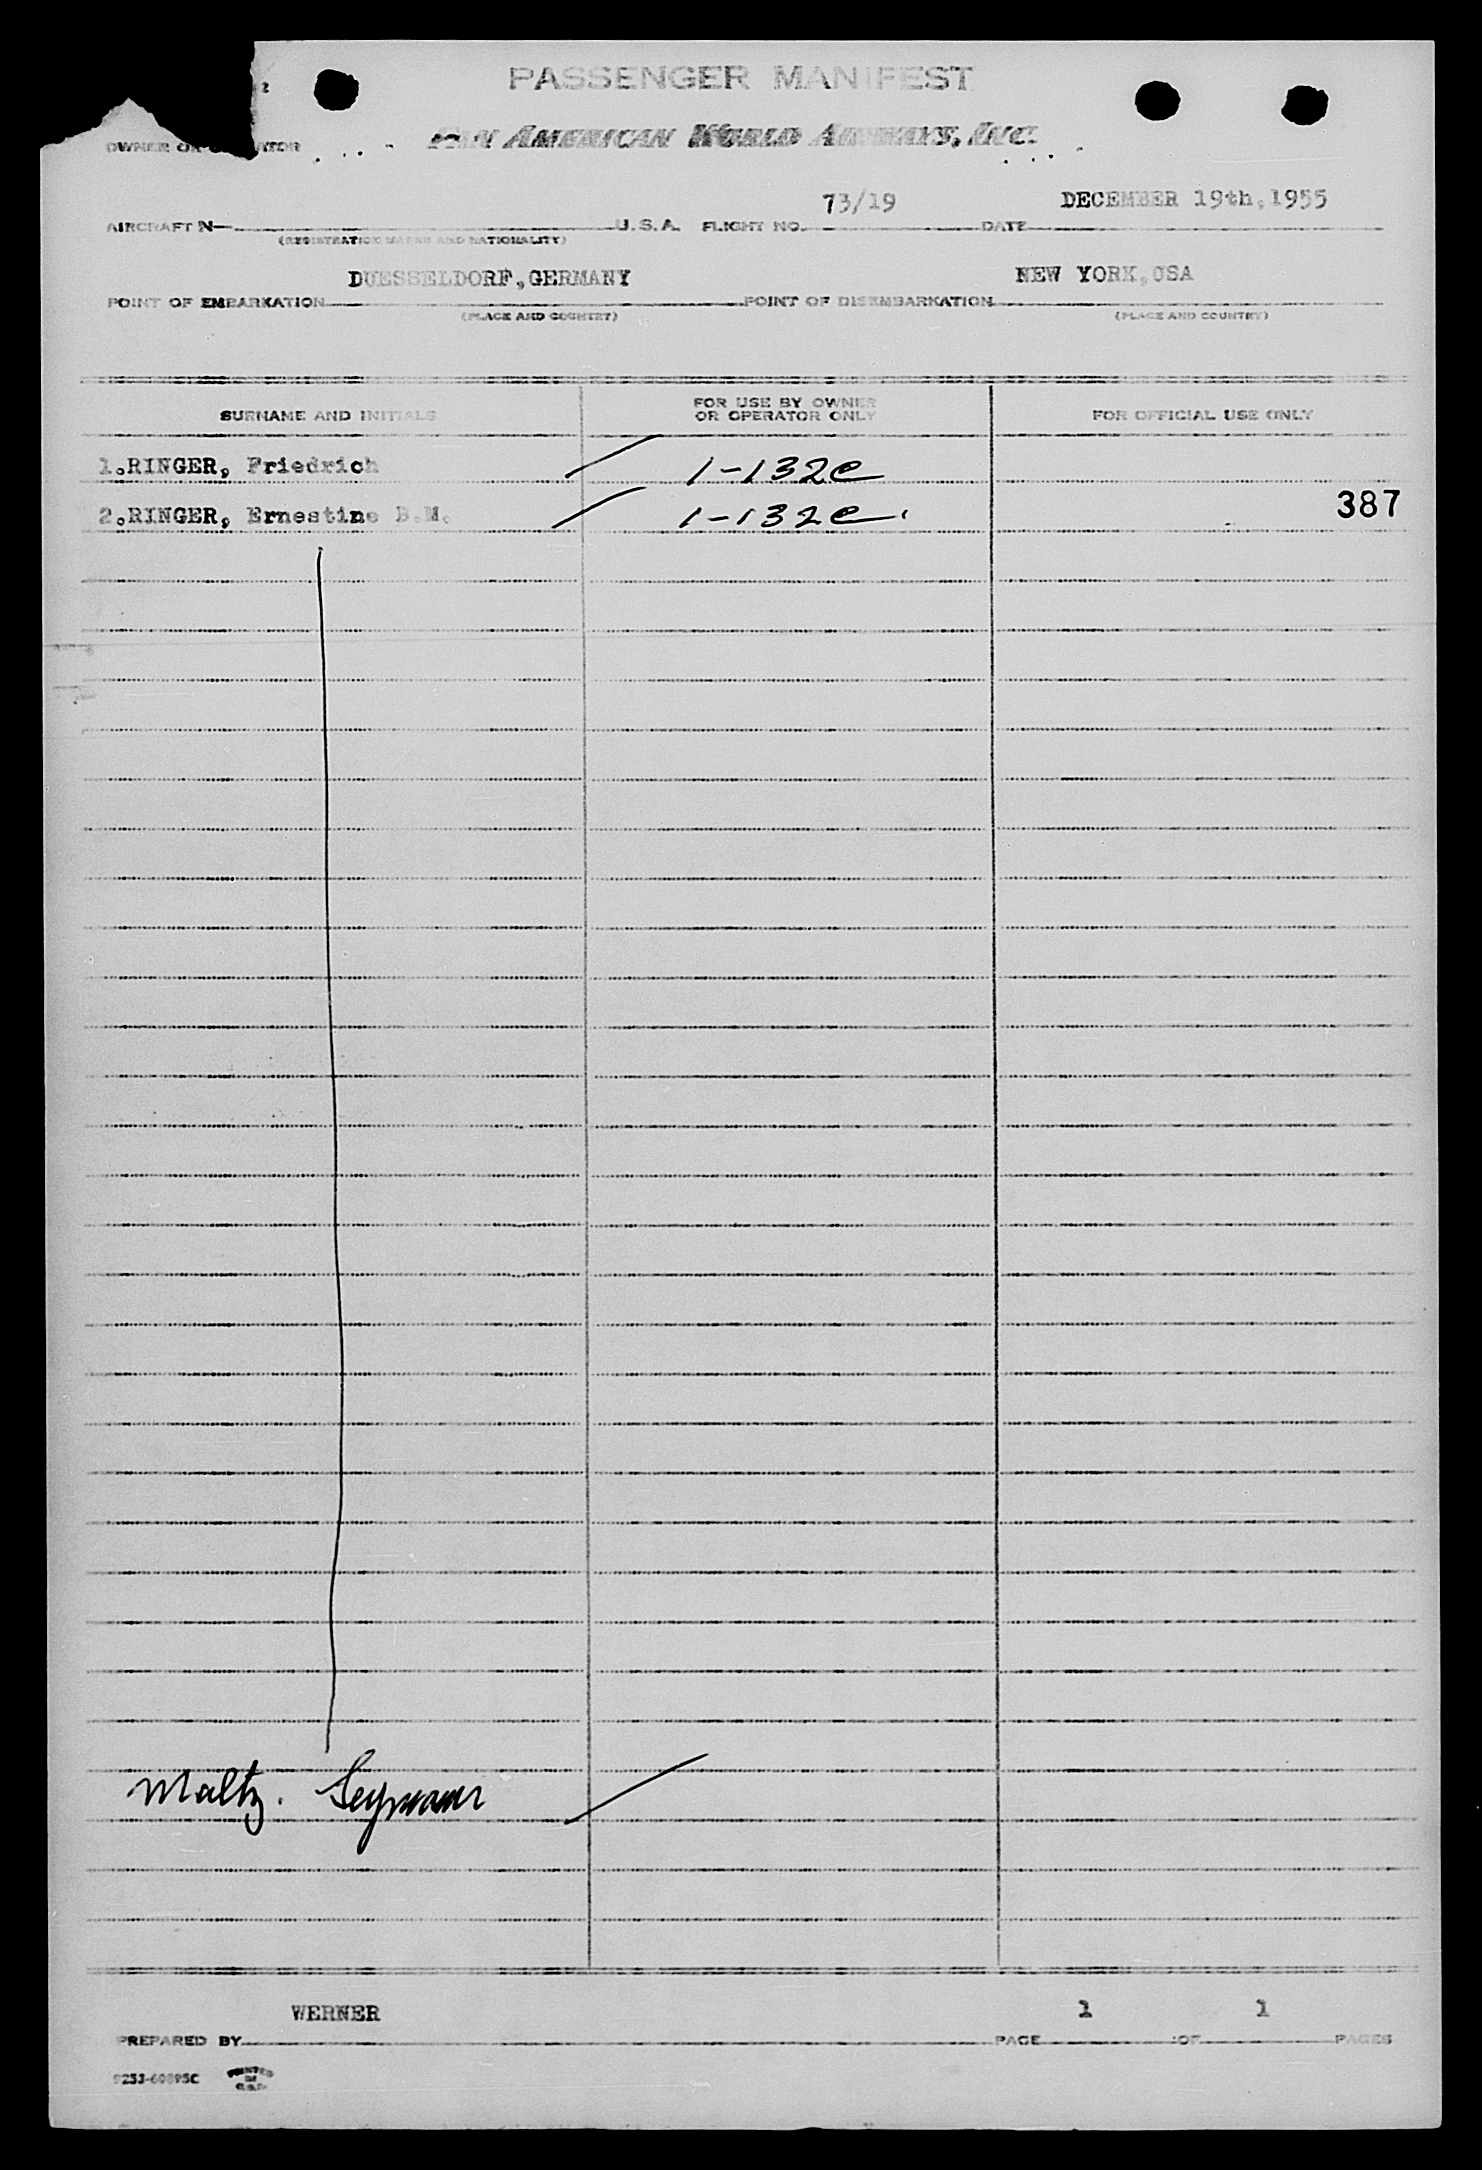 PASSENGER MANIFEST
OWNER OR OPERATOR PAN AMERICAN WORLD AIRWAYS, INC.
73/19 DECEMBER 19th,1955
AIRCRAFT N— U.S.A. FLIGHT NO. DATE
(REGISTRATION MARKS AND NATIONALITY)
DUESSELDORF,GERMANY NEW YORK,USA
POINT OF EMBARKATION POINT OF DISEMBARKATION
(PLACE AND COUNTRY) (PLACE AND COUNTRY)
SURNAME AND INITIALS FOR USE BY OWNER OR OPERATOR ONLY FOR OFFICIAL USE ONLY
1.RINGER, Friedrich 1-132e
2.RINGER, Ernestine B.M. 1-132e 387
Maltz. Seymour
WERNER 1 1
PREPARED BY PAGE OF PAGES
9253-60895C PRINTED IN U.S.A.